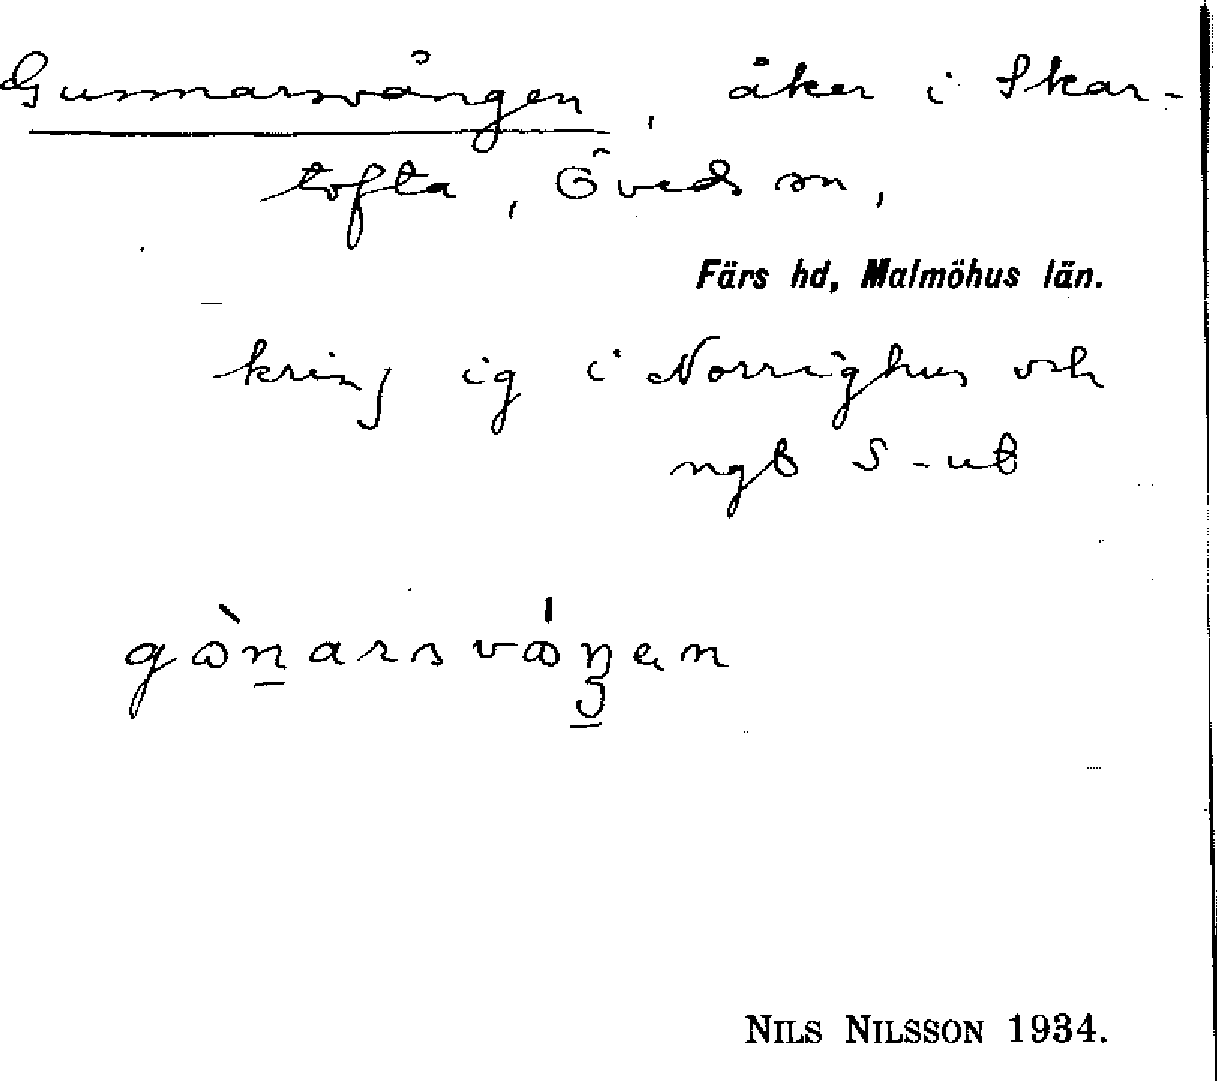 Gunnarsvången, åker i Skar-
tofta, Öveds sn,
Färs hd, Malmöhus län.
kring ig i Norrighus och
ngt S-ut
gɷ̀narsvɷ́ŋen
NILS NILSSON 1934.